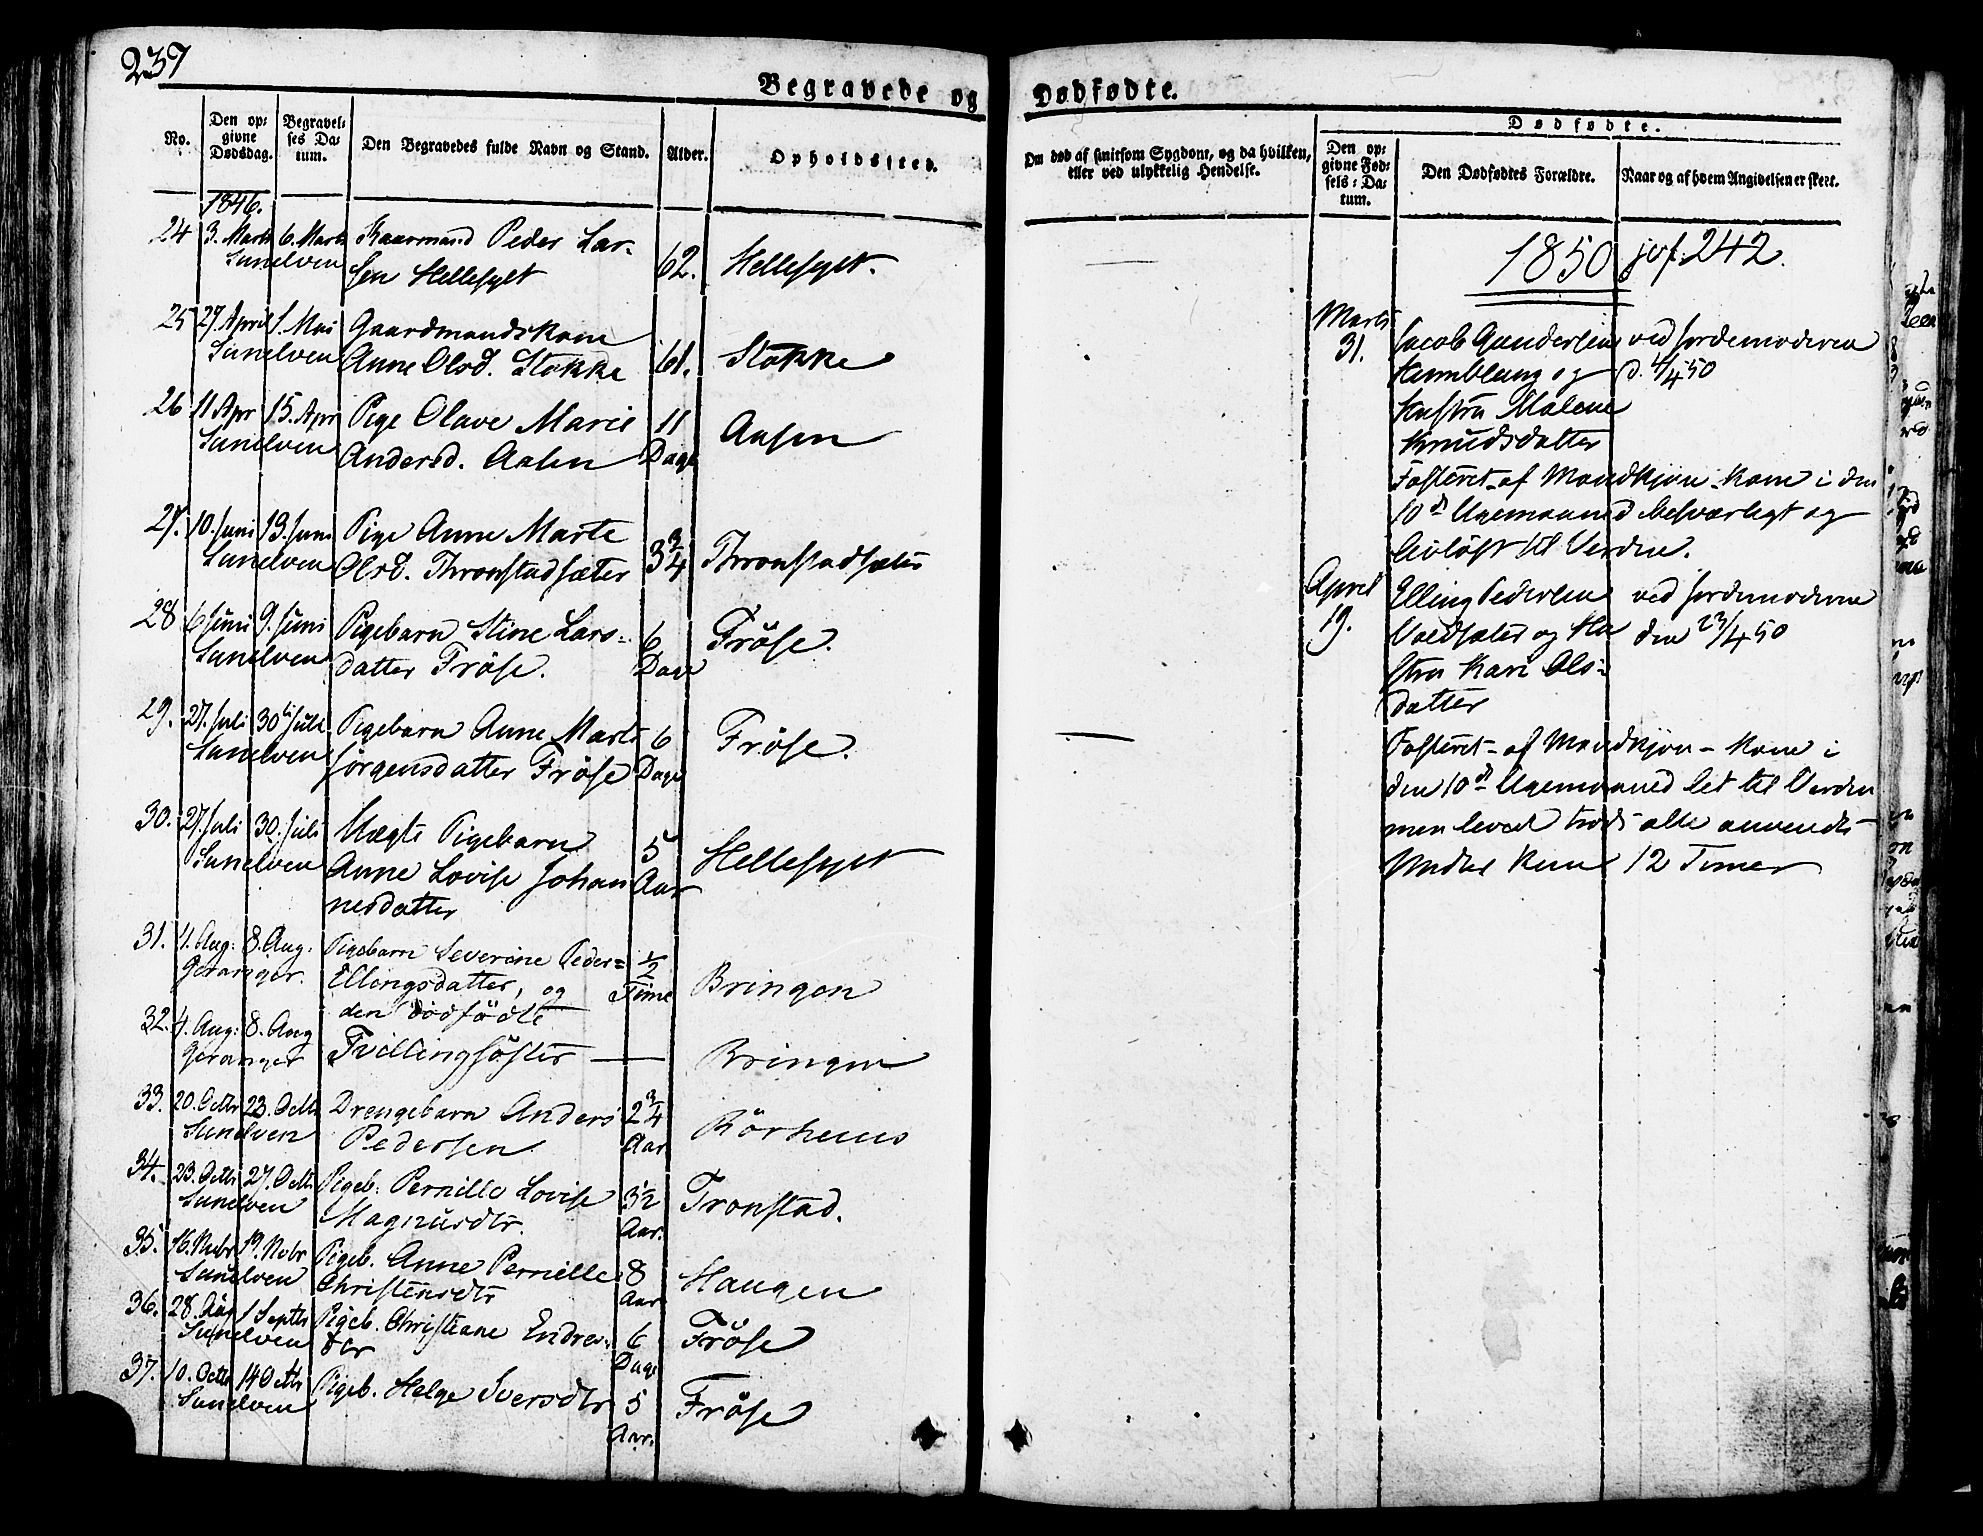 239
Begravede og Dødfødte.
No.
Den opgivne Dødsdag.
Begravelses Datum.
Den Begravedes fulde Navn og Stand.
Alder.
Opholdssted.
Om død af smitsom Sygdom, og da hvilken,
eller ved ulykkelig Hendelse.
Dødfødte.
Den opgivne Fødsels-Datum.
Den Dødfødtes Forældre.
Naar og af hvem Angivelsen er skeet.
1846.
24 3. Marts 6. Marts Kaarmand Peder Lar-
Sunelven sen Hellesylt 62. Hellesylt.
25 27. April 1. Mai Gaardmandskone
Sunelven Anne Olsd. Stokke 61. Stokke
26 11 Apr 15. Apr Pige Olave Marie 11 Aasen
Sunelven Andersd. Aasen Dage
27. 10. Juni 13. Juni Pige Anne Marte
Sunelven Olsd. Thronstadsæter 3 3/4 Thronstadsæter
28 6 Juni 9. Juni Pigebarn Stine Lars- 6 Fröse.
Sunelven datter Fröse. Dage
29. 27. Juli 30 Juli Pigebarn Anne Marte 6 Fröse.
Sunelven Jörgensdatter Fröse Dage
30. 27 Juli 30. Juli Lægts Pigebarn 5
Sunelven Anne Lovise Johan Aar Hellesylt
nesdatter
31. 4. Aug: 8. Aug. Pigebarn Severine Peder= 1/2
Geranger. Ellingsdatter, og Time Bringen
den dödfödte
32. 4. Aug: 8. Aug
Geranger Tvillingsöster — Bringen
33. 20. Octbr 23. Octb Drengebarn Anders 2 3/4
Sunelven Pedersen Aar Rörhuus
34. 23. Octbr 27. Octb Pigeb. Pernille Lovise 3 1/2 Tronstad.
Sunelven Magnusdtr. Aar.
35. 16. Nvbr 19. Nvbr Pigeb. Anne Pernille 8 Haugen
Sunelven Christensdtr Aar
36. 28. Aug 1 Septbr Pigeb. Christiane Endres- 6 Fröse
Sunelven dtr Dage
37. 10. Octbr 14 Octbr Pigeb. Helge Iversdtr 5 Fröse
Sunelven Aar.
1850 jevf. 242.
Marts
31. Jacob Gundersen ved Jordemoderen
Humblung og d. 4/4 50
Hustru Malene
Knudsdatter
Fosteret af Mandkjøn kom i den
10d Ugemaaned besværligt og
livløst til Verden.
April
19. Elling Pedersen ved Jordemoderen
Voldsæter og Hu den 23/4 50
stru Kari Ols-
datter
Fosteret - af Mandkjøn - kom i
den 10d Ugemaaned let til Verden
men leved trods alle anvendte
Midler kun 12 Timer